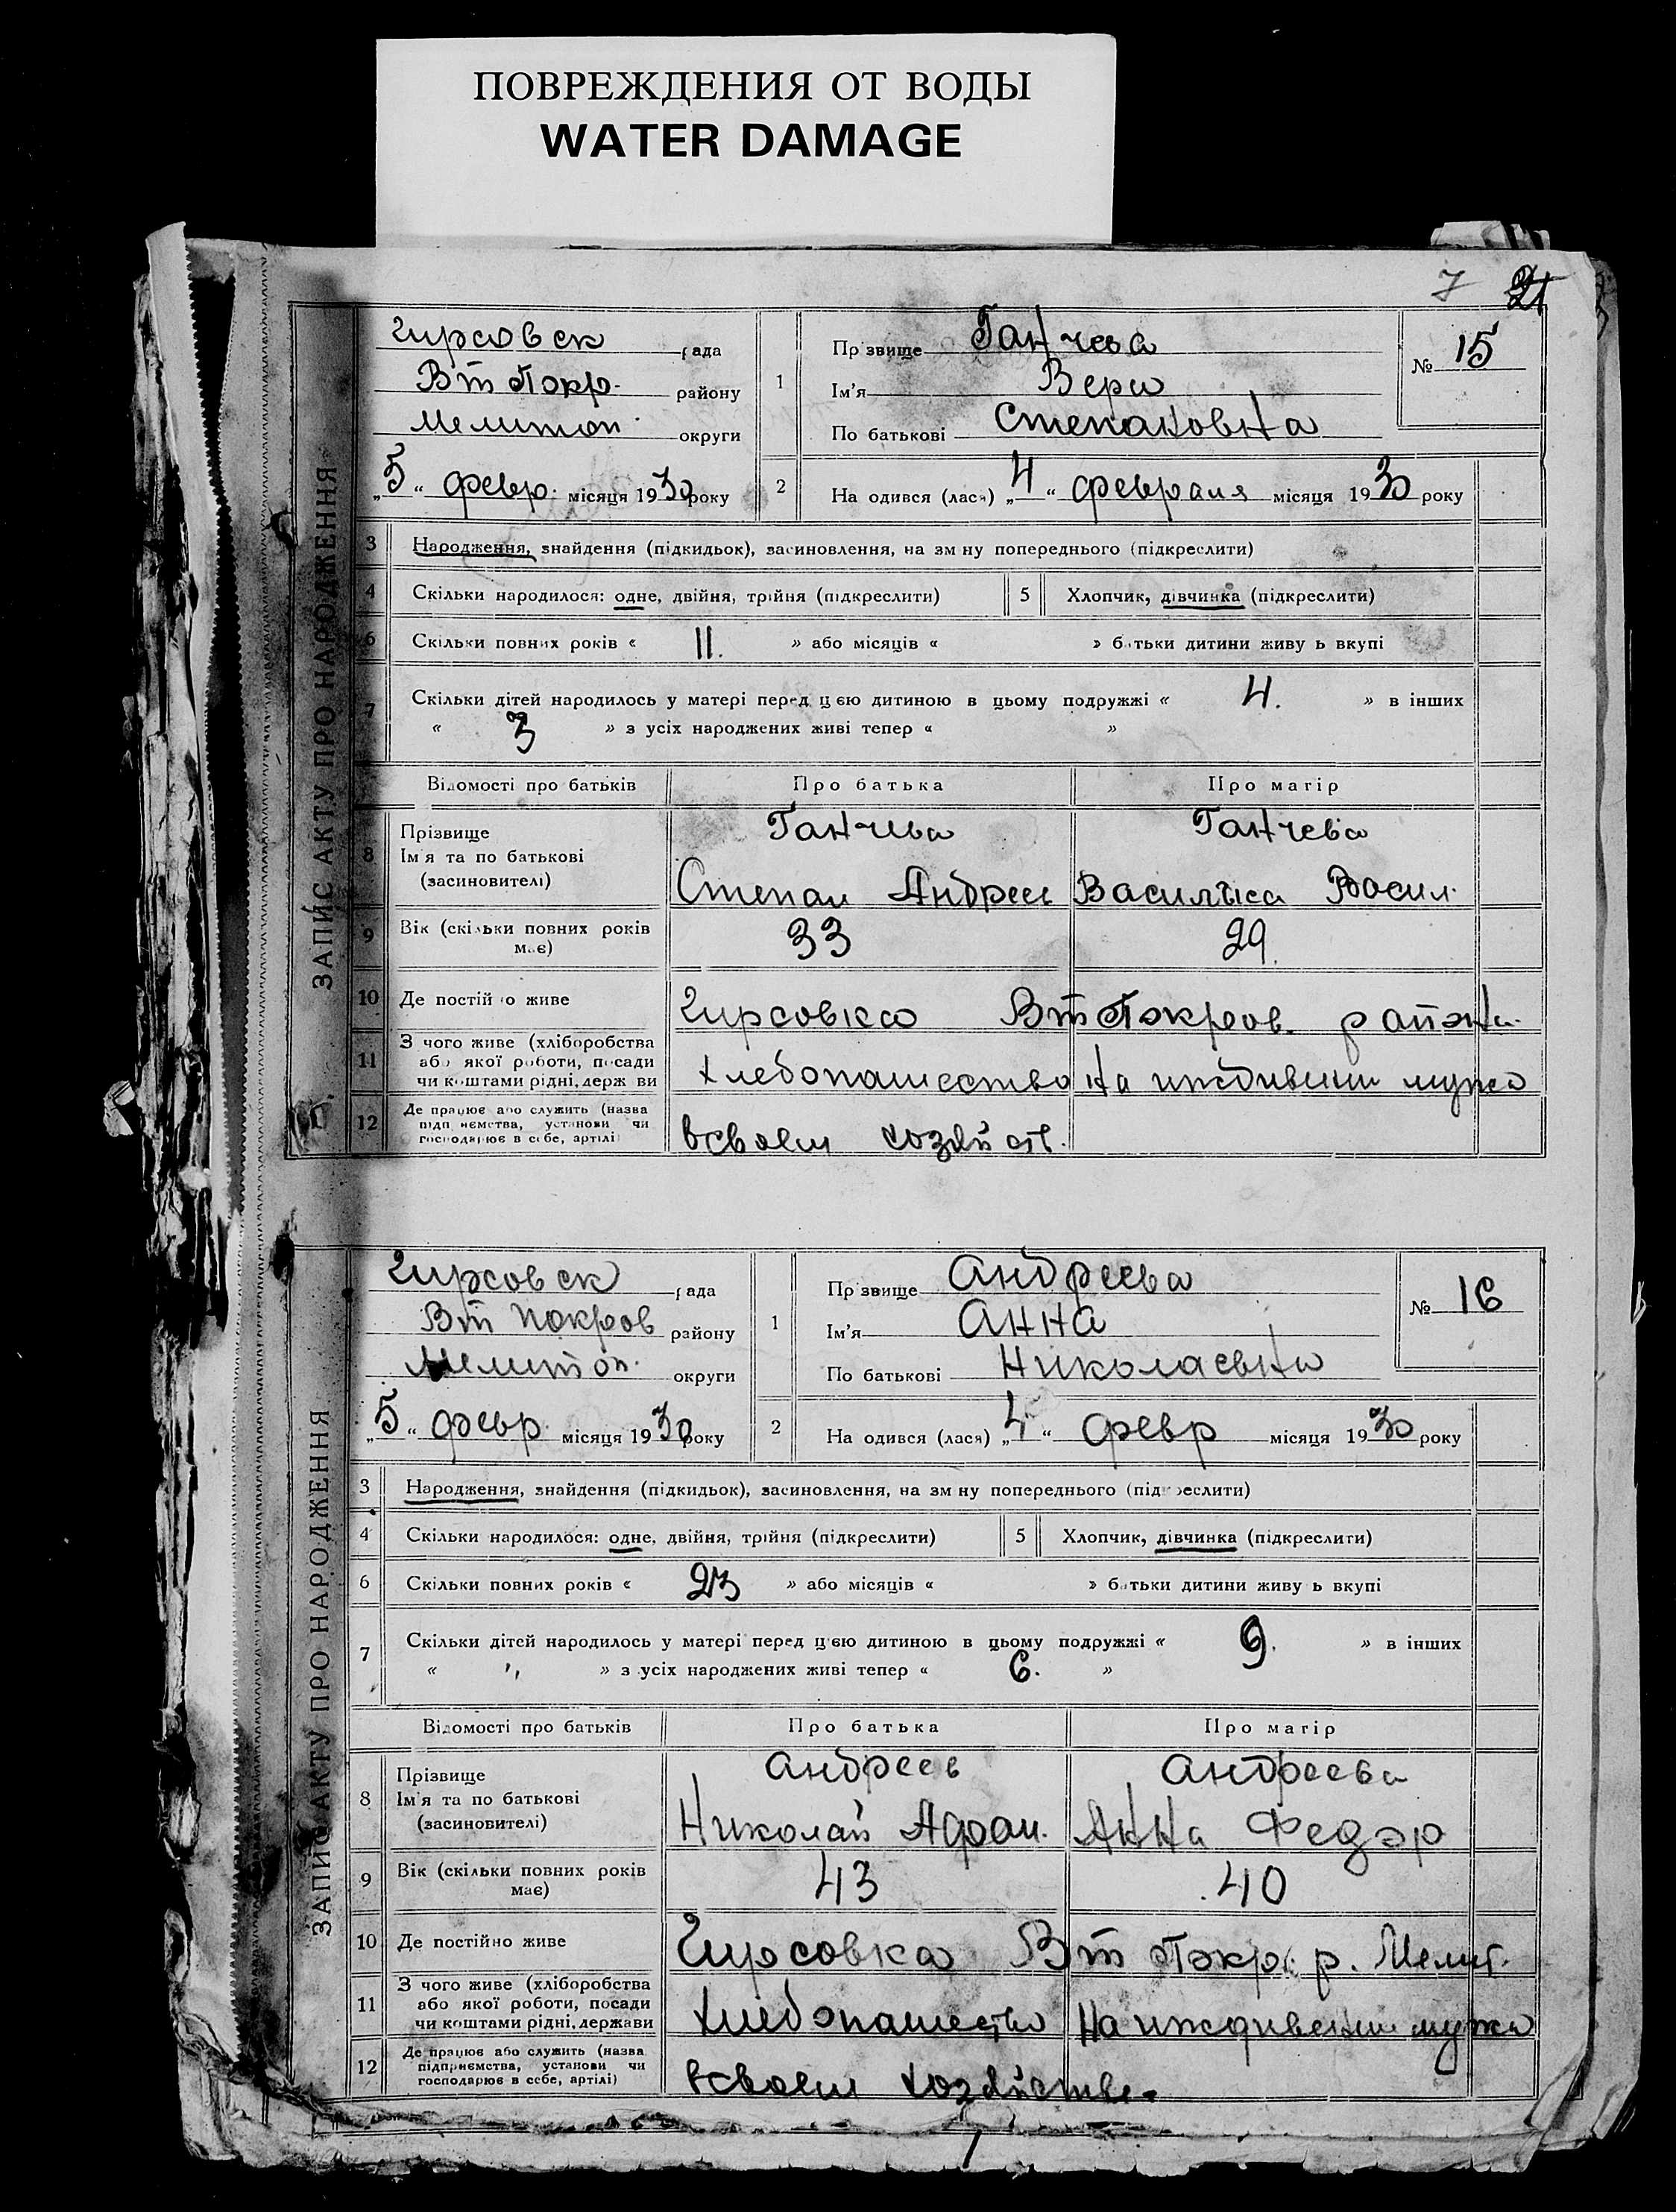 ПОВРЕЖДЕНИЯ ОТ ВОДЫ
WATER DAMAGE
7 21
ЗАПИС АКТУ ПРО НАРОДЖЕННЯ
Гирсовск рада
Вт Покр. району
Мелитоп. округи
„5“ февр. місяця 1930 року
1 Прізвище Ганчева
Ім'я Вера
По батькові Степановна
№ 15
2 Народився (лася) „4“ февраля місяця 1930 року
3 Народження, знайдення (підкидьок), засиновлення, на зміну попереднього (підкреслити)
4 Скільки народилося: одне, двійня, трійня (підкреслити) 5 Хлопчик, дівчинка (підкреслити)
6 Скільки повних років « 11. » або місяців « » батьки дитини живуть вкупі
7 Скільки дітей народилось у матері перед цією дитиною в цьому подружжі « 4. » в інших
« 3 » з усіх народжених живі тепер « »
Відомості про батьків Про батька Про матір
8 Прізвище Ганчева Ганчева
Ім'я та по батькові
(засиновителі) Степан Андрее Василиса Васил.
9 Вік (скільки повних років має) 33 29.
10 Де постійно живе Гирсовка Вт Покров. района.
11 З чого живе (хліборобства
або якої роботи, посади
чи коштами рідні, держави Хлебопашество На иждивении мужа
12 Де працює або служить (назва
підприємства, установи чи
господарює в себе, артілі) в своем хозяйст.
ЗАПИС АКТУ ПРО НАРОДЖЕННЯ
Гирсовск рада
Вт Покров району
Мелитоп. округи
„5“ февр. місяця 1930 року
1 Прізвище Андреева
Ім'я Анна
По батькові Николаевна
№ 16
2 Народився (лася) „4“ февр місяця 1930 року
3 Народження, знайдення (підкидьок), засиновлення, на зміну попереднього (підкреслити)
4 Скільки народилося: одне, двійня, трійня (підкреслити) 5 Хлопчик, дівчинка (підкреслити)
6 Скільки повних років « 23 » або місяців « » батьки дитини живуть вкупі
7 Скільки дітей народилось у матері перед цією дитиною в цьому подружжі « 9. » в інших
« " » з усіх народжених живі тепер « 6. »
Відомості про батьків Про батька Про матір
8 Прізвище Андреев Андреева
Ім'я та по батькові
(засиновителі) Николай Анна Федор
9 Вік (скільки повних років має) 43 40
10 Де постійно живе Гирсовка Вт Покр. р. Мелит.
11 З чого живе (хліборобства
або якої роботи, посади
чи коштами рідні, держави Хлебопашество На иждивении мужа
12 Де працює або служить (назва
підприємства, установи чи
господарює в себе, артілі) в своем хозяйстве.